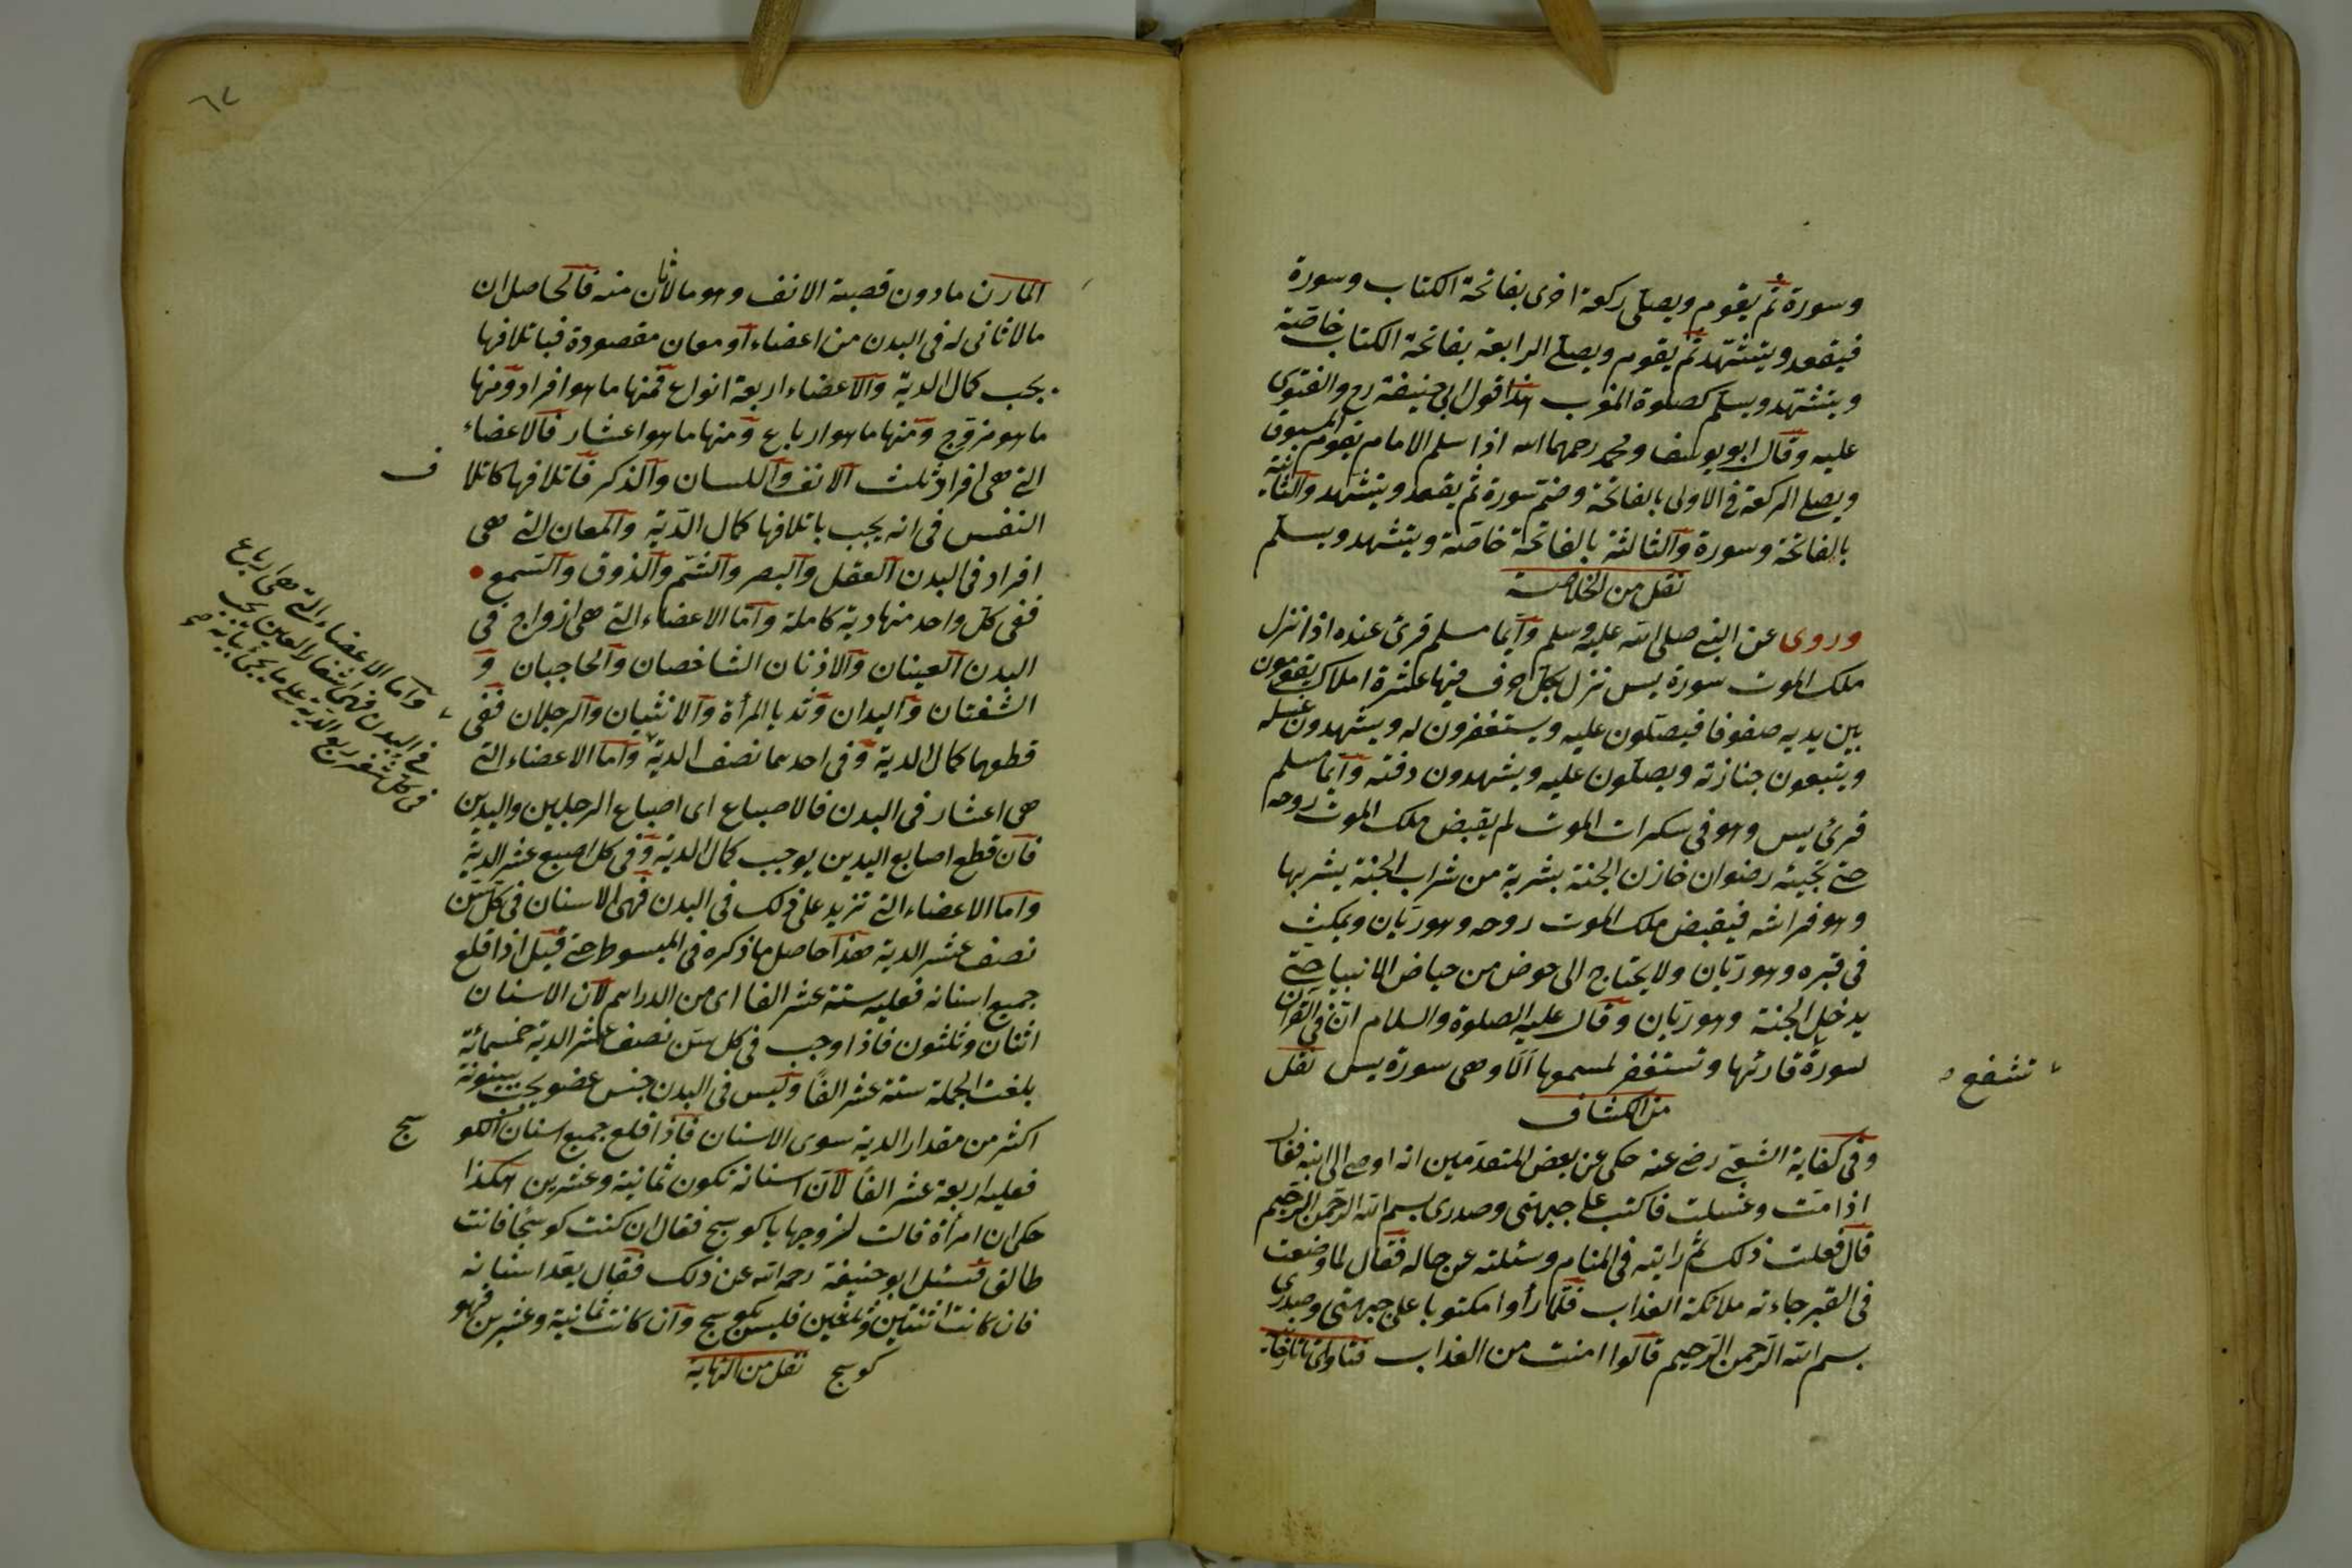 وسورة ثم يقوم ويصلى ركعة اخرى بفاتحة الكتاب وسورة
فيقعد ويتشهد ثم يقوم ويصلى الرابعة بفاتحة الكتاب خاصة
ويتشهد ويسلم كصلوة المغرب هذا قول ابى حنيفة رح والفتوى
عليه وقال ابو يوسف ومحمد رحمهما الله اذا سلم الامام يقوم المسبوق
ويصلى الركعة فى الاولى بالفاتحة وضم سورة ثم يقعد ويتشهد والثانية
بالفاتحة وسورة والثالثة بالفاتحة خاصة ويتشهد ويسلم
نقل من الخلاصة
وروى عن النبى صلى الله عليه وسلم وايما مسلم قرئ عنده اذا نزل
ملك الموت سورة يس نزل بكل حرف فيها عشرة املاك يقومون
بين يديه صفوفا فيصلون عليه ويستغفرون له ويشهدون غسله
ويتبعون جنازته ويصلون عليه ويشهدون دفنه وايما مسلم
قرئ يس وهو فى سكرات الموت لم يقبض ملك الموت روحه
حتى تجيئه رضوان خازن الجنة بشربة من شراب الجنة يشربها
وهو فراشه فيقبض ملك الموت روحه وهو ريان ويمكث
فى قبره وهو ريان ولا يحتاج الى حوض من حياض الانبيا حتى
يدخل الجنة وهو ريان وقال عليه الصلوة والسلام ان فى القرآن
لسورة قارئها وتستغفر لمسمعها الا وهى سورة يس نقل
تشفع
من الكشاف
وفى كفاية الشعبى رضى عنه حكى عن بعض المتقدمين انه اوصى الى ابنه فقال
اذا مت وغسلت فاكتب على جبهتى وصدرى بسم الله الرحمن الرحيم
قال فعلت ذلك ثم رايته فى المنام وسئلته عن حاله فقال لما وضعت
فى القبر جاءته ملائكة العذاب فلما رأوا مكتوبا على جبهتى وصدرى
بسم الله الرحمن الرحيم قالوا امنت من العذاب فتاوى
٦٧
المارن مادون قصبة الانف وهو مالان منه فالحاصل ان
مالا ثانى له فى البدن من اعضاء او معان مقصودة فباتلافها
يجب كمال الدية والاعضاء اربعة انواع فمنها ما هو افراد ومنها
ما هو مزوج ومنها ما هو ارباع ومنها ما هو اعشار فالاعضاء
التى هى افراد ثلث الانف واللسان والذكر فاتلافها كاتلا
ف
النفس فى انه يجب باتلافها كمال الدية والمعان التى هى
افراد فى البدن العقل والبصر والشم والذوق والسمع
ففى كل واحد منها دية كاملة واما الاعضاء التى هى ازواج فى
البدن العينان والاذنان الشاخصان والحاجبان و
الشفتان واليدان وثديا المرأة والانثيان والرجلان ففى
قطعهما كمال الدية وفى احدهما نصف الدية واما الاعضاء التى
واما الاعضاء التى هى ارباع
فى البدن فهى اشفار العين يجب
فى كل شفر ربع الدية على ما يجئ بيانه صح
هى اعشار فى البدن فالاصباع اى اصباع الرجلين واليدين
فان قطع اصابع اليدين يوجب كمال الدية وفى كل اصبع عشر الدية
واما الاعضاء التى تزيد على ذلك فى البدن فهى الاسنان فى كل سن
نصف عشر الدية هذا حاصل ما ذكره فى المبسوط حتى قيل اذا قلع
جميع اسنانه فعليه ستة عشر الفا اى من الدراهم لان الاسنان
اثنان وثلثون فاذا وجب فى كل سن نصف عشر الدية خمسمائة
بلغت الجملة ستة عشر الفًا وليس فى البدن جنس عضو يجب
اكثر من مقدار الدية سوى الاسنان فاذا قلع جميع اسنان الكو
سج
فعليه اربعة عشر الفًا لان اسنانه تكون ثمانية وعشرين هكذا
حكى ان امرأة قالت لزوجها يا كوسج فقال ان كنت كوسجًا فانت
طالق فسئل ابو حنيفة رحمه الله عن ذلك فقال يعد اسنانه
فان كانت اثنتين وثلثين فليس بكوسج وان كانت ثمانية وعشرين فهو
كوسج نقل من النهاية